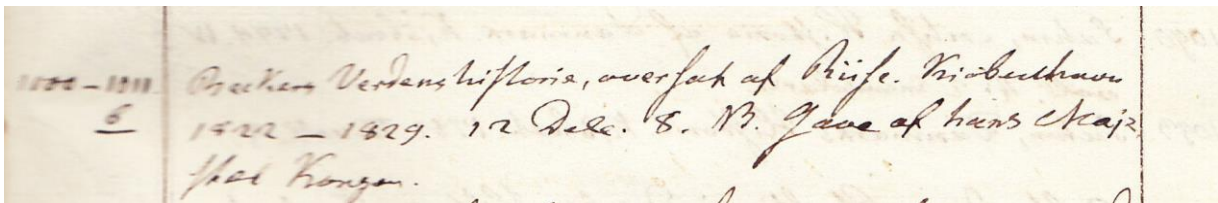 Beckers Verdenshistorie, oversat af Riise. Kiøbenhavn
6 1822 – 1829. 12 Dele. 8. NB. Gave af hans Maje
stæt Kongen.